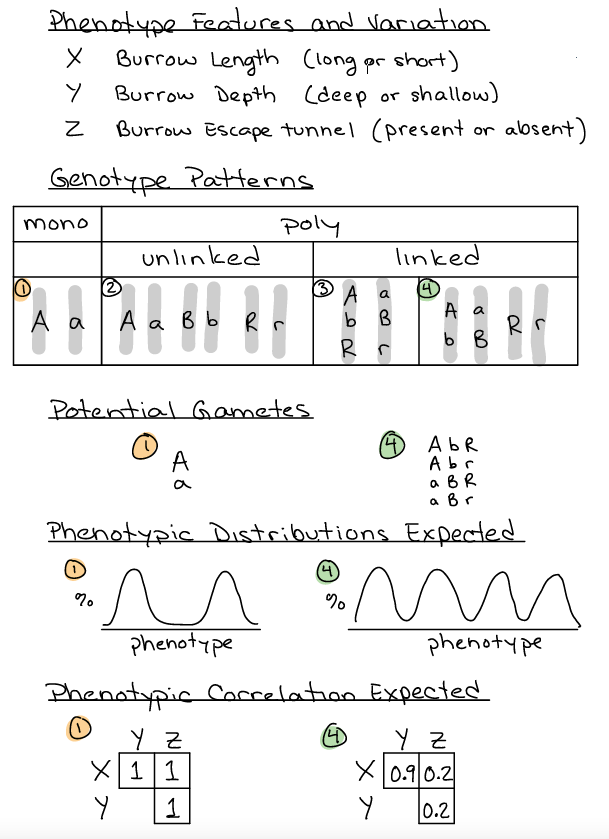 Phenotype Features and Variation
X Burrow Length (long or short)
Y Burrow Depth (deep or shallow)
Z Burrow Escape tunnel (present or absent)
Genotype Patterns
mono poly
unlinked linked
1 A a
2 A a B b R r
3 A a
b B
R r
4 A a R r
b B
Potential Gametes
1 A
a
4 A b R
A b r
a B R
a B r
Phenotypic Distributions Expected
1 % phenotype
4 % phenotype
Phenotypic Correlation Expected
1 Y Z
X 1 1
Y 1
4 Y Z
X 0.9 0.2
Y 0.2